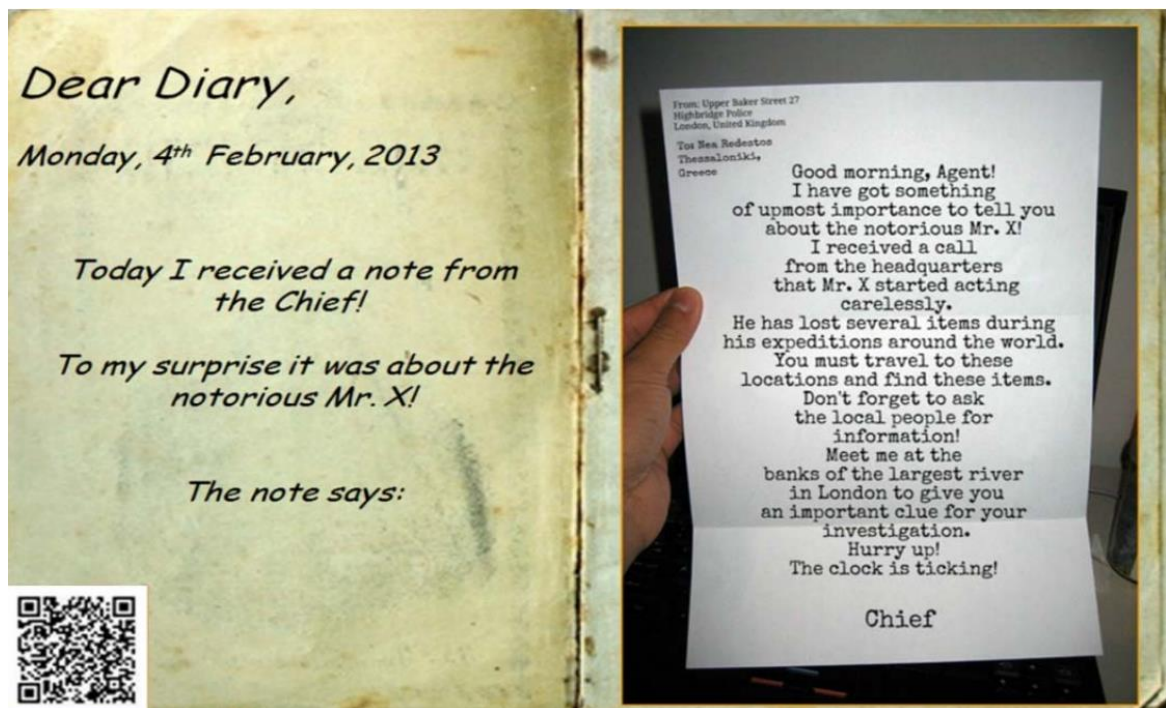 Dear Diary,
Monday, 4th February, 2013
Today I received a note from
the Chief!
To my surprise it was about the
notorious Mr. X!
The note says:
From: Upper Baker Street 27
Highbridge Police
London, United Kingdom
To: Nea Redestos
Thessaloniki,
Greece
Good morning, Agent!
I have got something
of upmost importance to tell you
about the notorious Mr. X!
I received a call
from the headquarters
that Mr. X started acting
carelessly.
He has lost several items during
his expeditions around the world.
You must travel to these
locations and find these items.
Don't forget to ask
the local people for
information!
Meet me at the
banks of the largest river
in London to give you
an important clue for your
investigation.
Hurry up!
The clock is ticking!
Chief